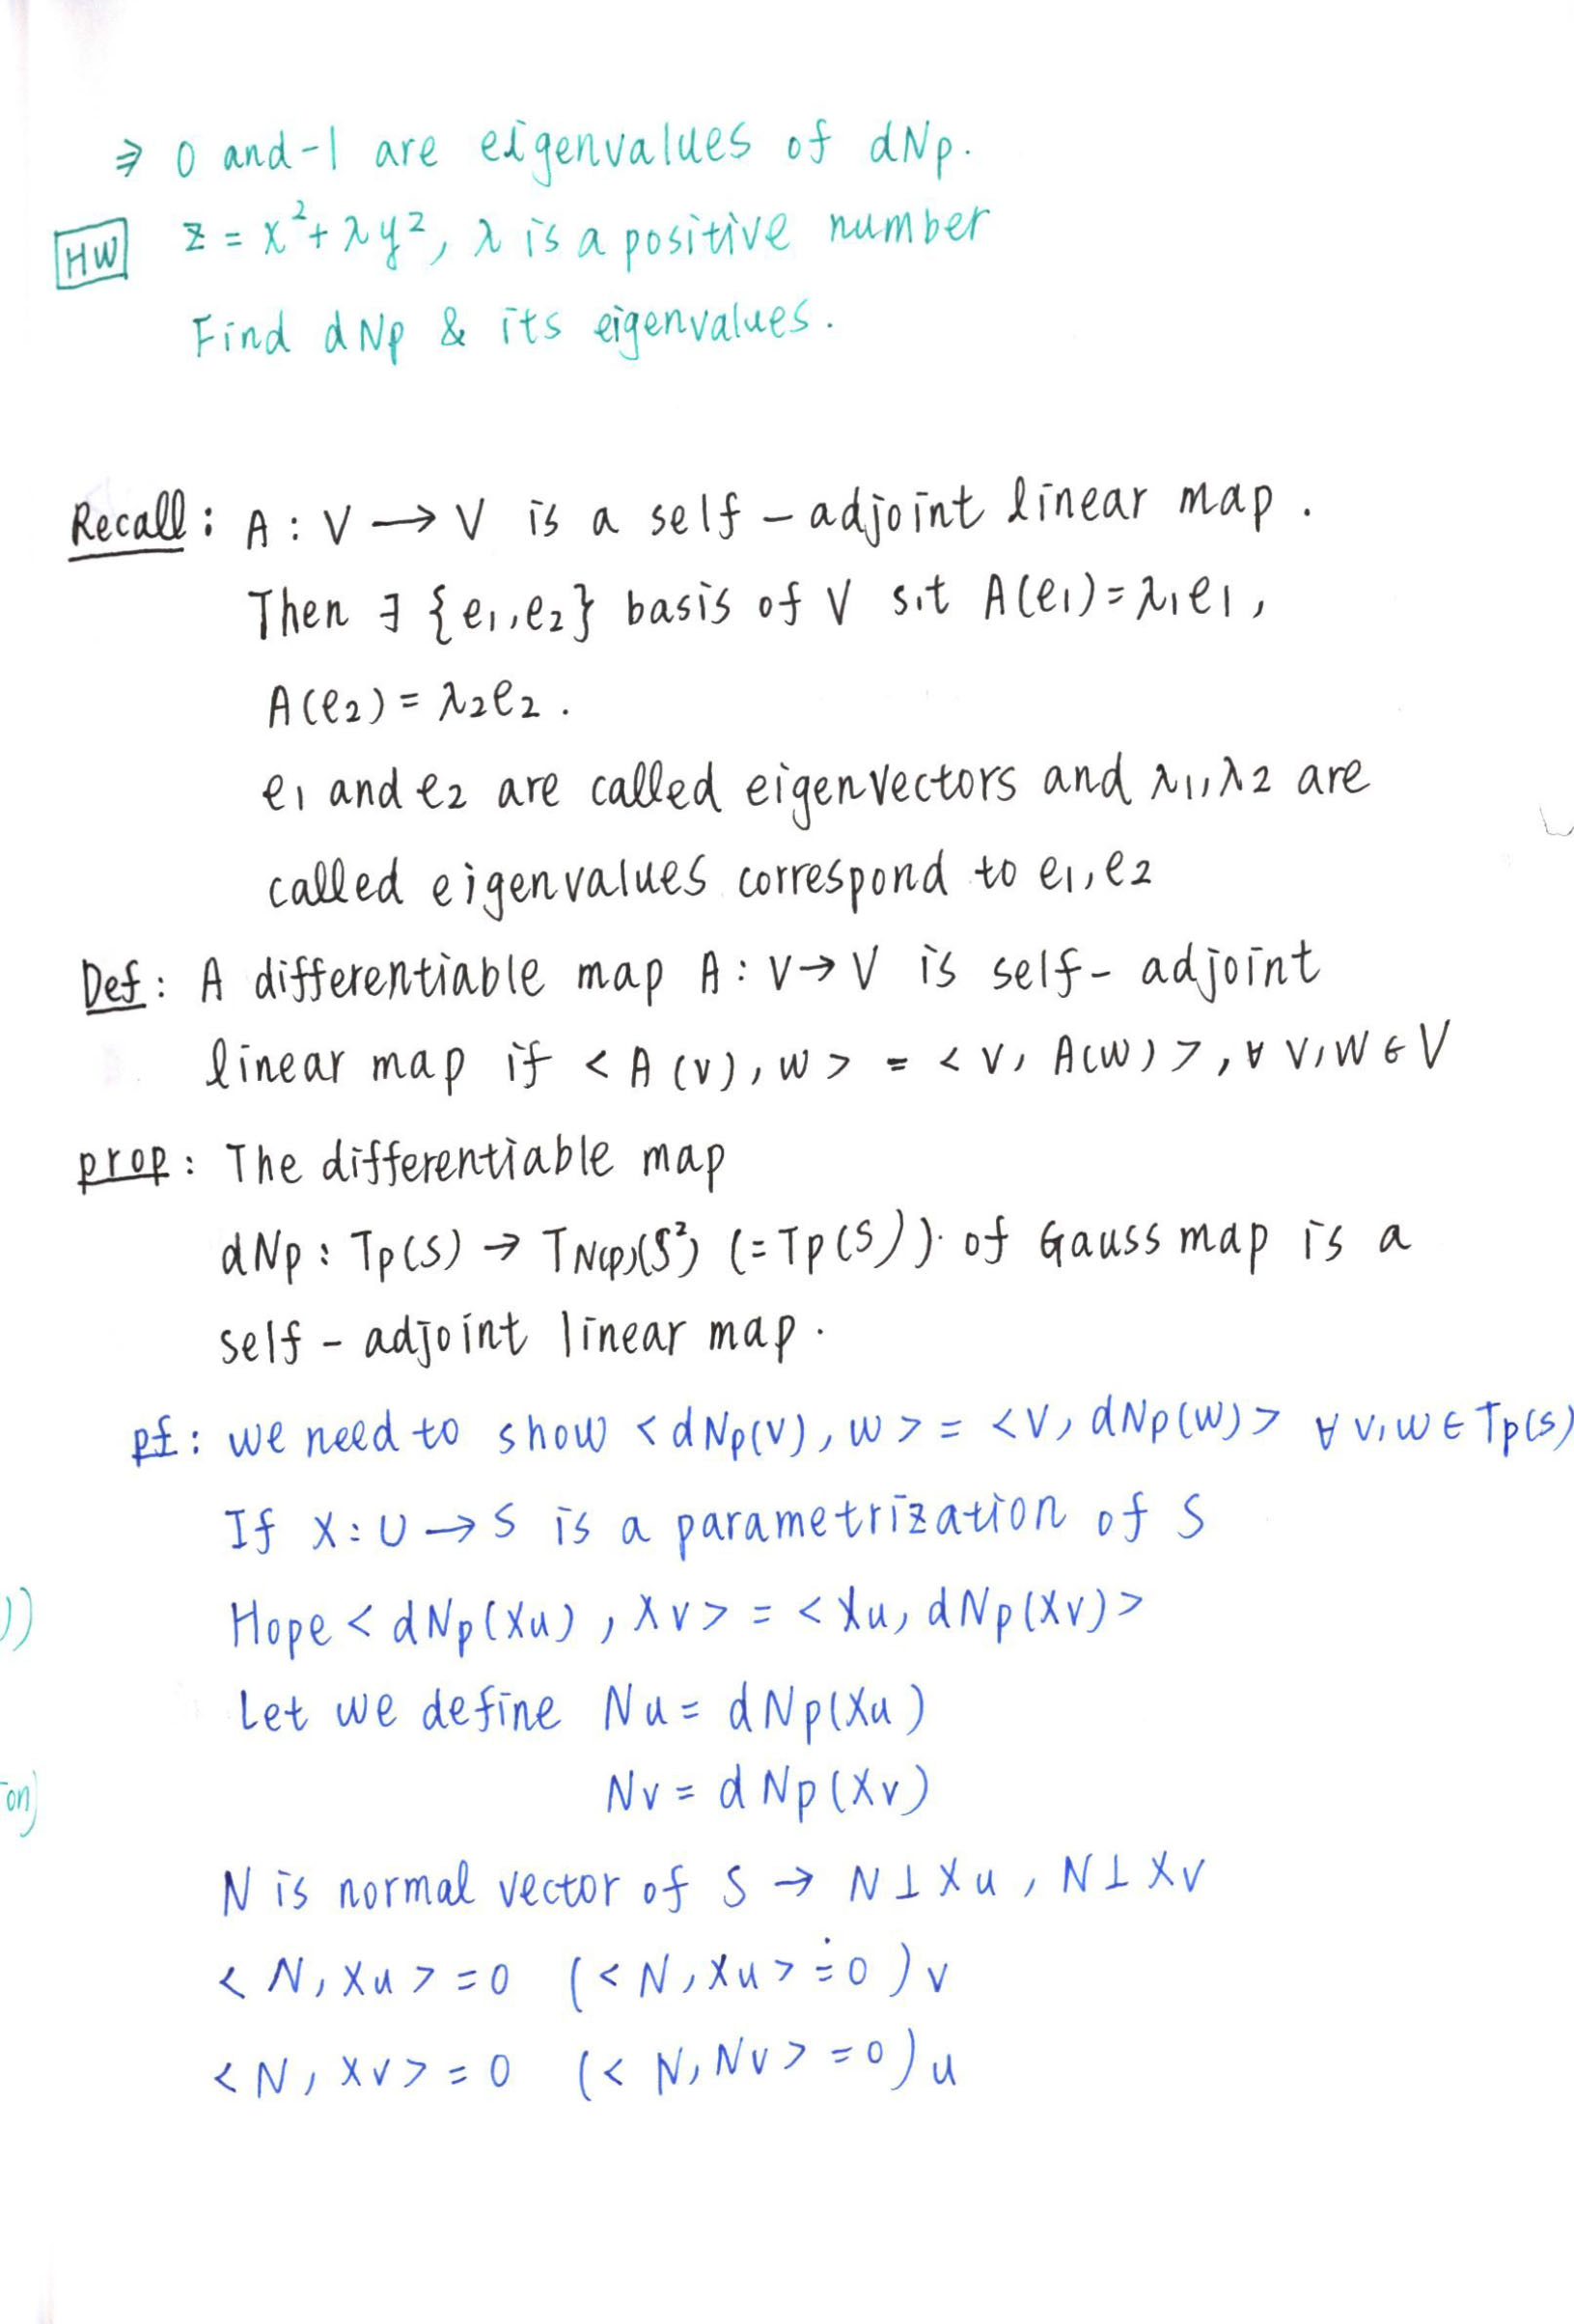 ⇒ 0 and -1 are eigenvalues of dNp.
HW z = x²+λy², λ is a positive number
Find dNp & its eigenvalues.
Recall : A : V → V is a self-adjoint linear map.
Then ∃ {e₁,e₂} basis of V s.t A(e₁)=λ₁e₁,
A(e₂)=λ₂e₂.
e₁ and e₂ are called eigenvectors and λ₁,λ₂ are
called eigenvalues correspond to e₁,e₂
Def : A differentiable map A : V→V is self-adjoint
linear map if <A(v),w> = <v, A(w)>, ∀ v,w∈V
prop : The differentiable map
dNp : Tp(S) → TN(p)(S²) (=Tp(S)). of Gauss map is a
self-adjoint linear map.
pf : we need to show <dNp(v), w> = <v, dNp(w)> ∀ v,w∈Tp(s)
If X:U→S is a parametrization of S
)) Hope <dNp(Xu), Xv> = <Xu, dNp(Xv)>
Let we define Nu = dNp(Xu)
on) Nv = dNp(Xv)
N is normal vector of S → N⊥Xu, N⊥Xv
<N, Xu> =0 (<N, Xu> =0)v
<N, Xv> =0 (<N, Nv> =0)u